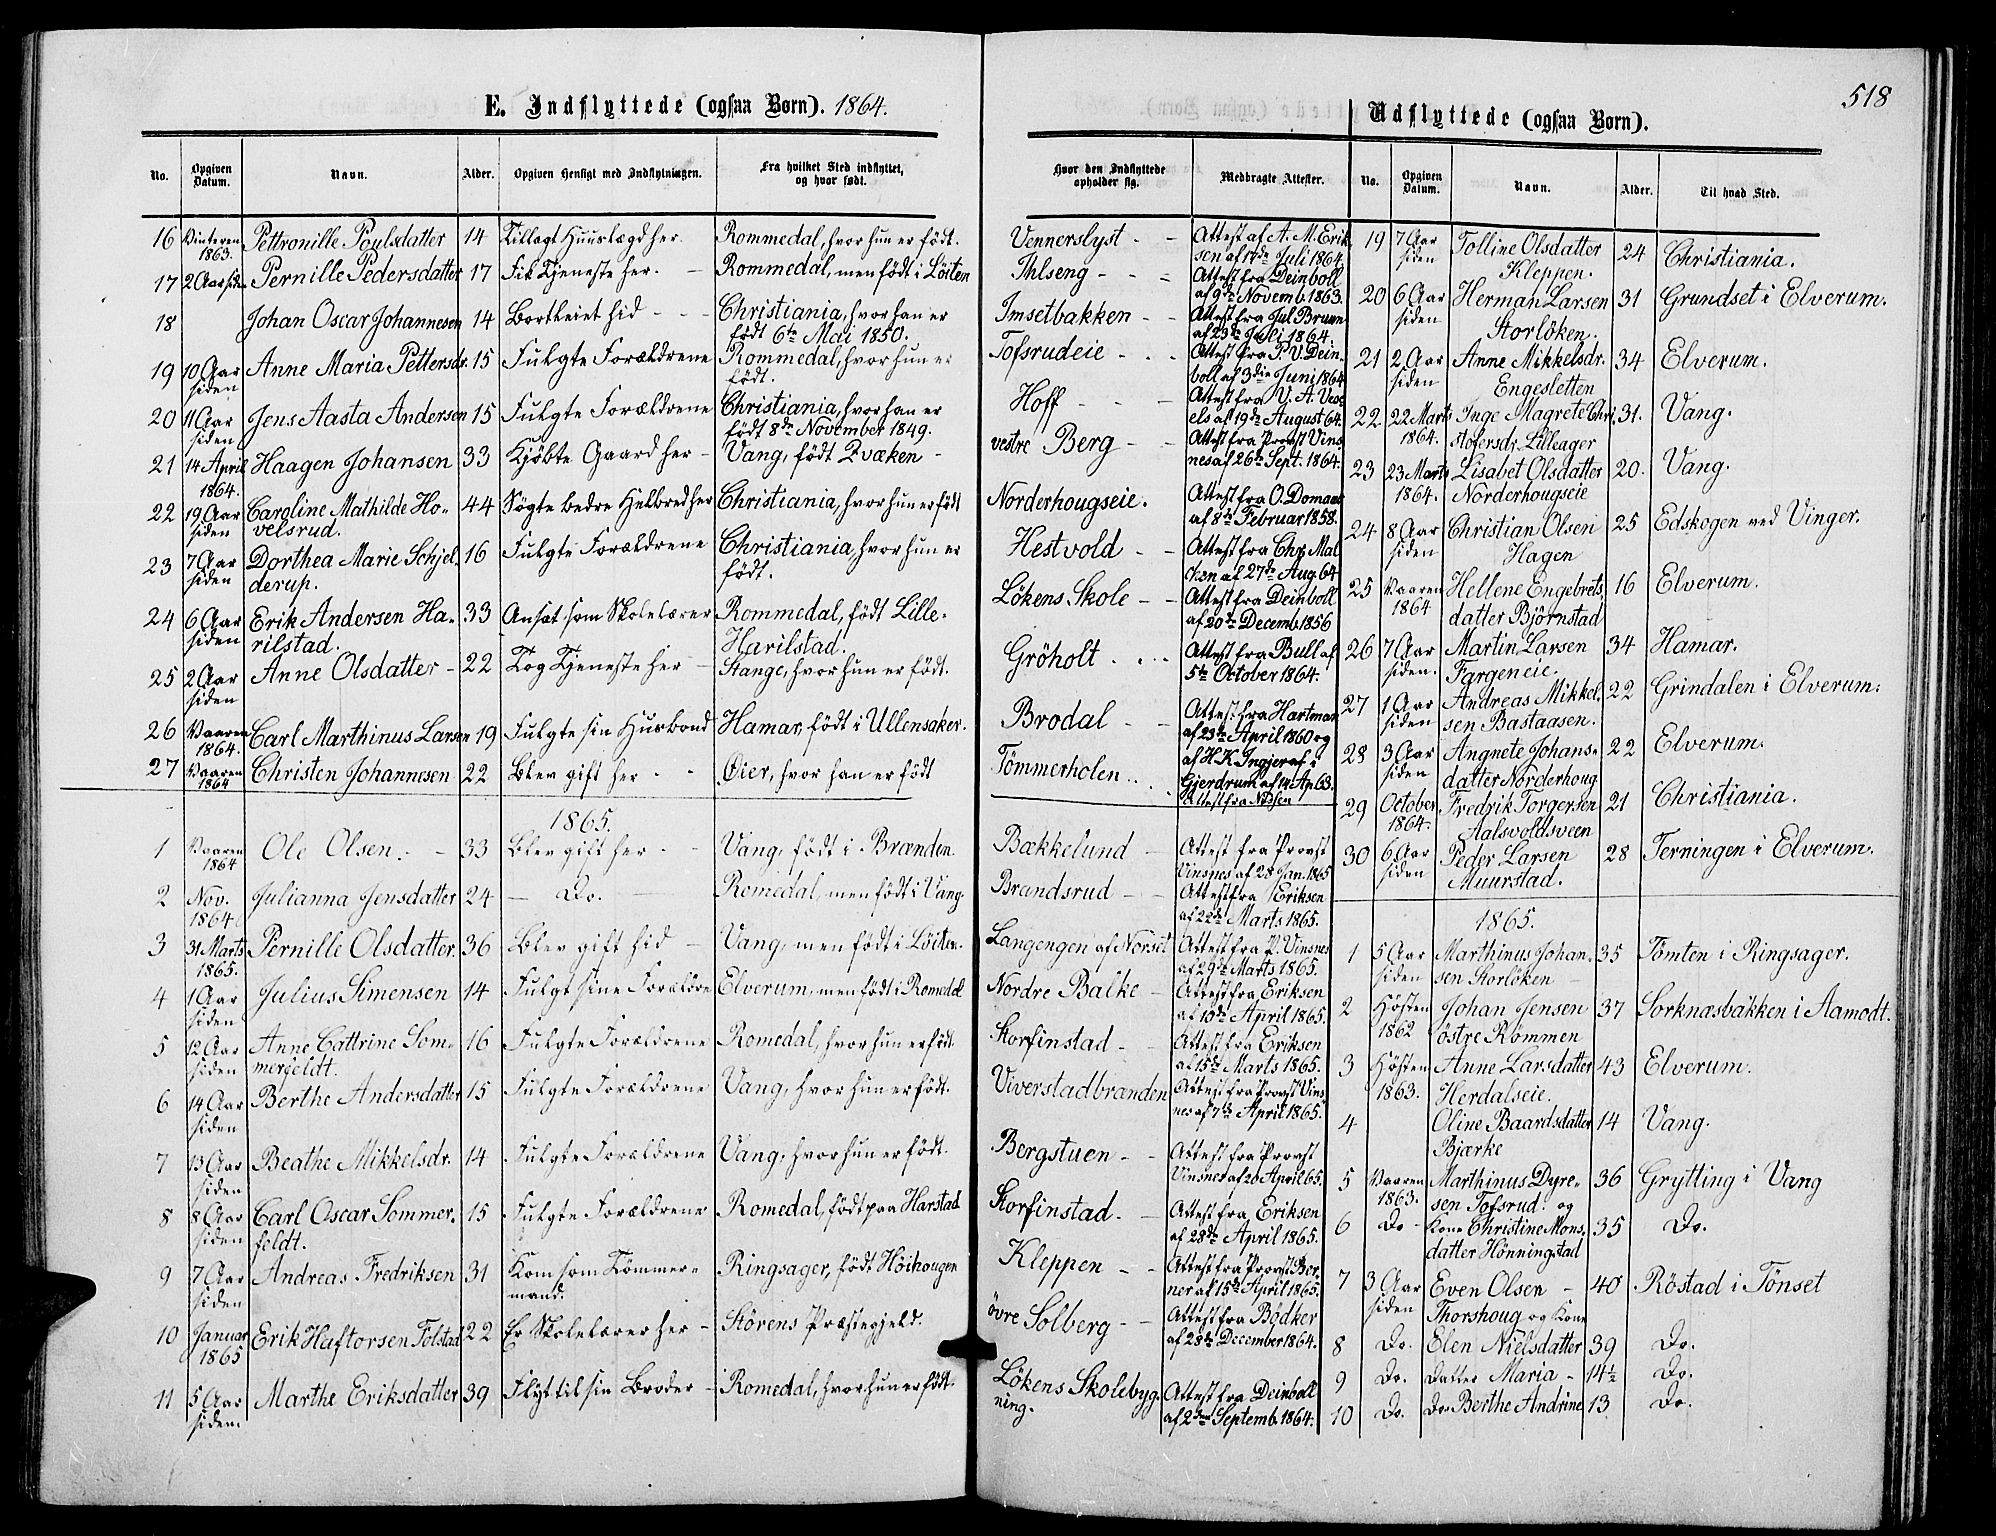 518
E. Indflyttede (ogsaa Børn). 1864.
Udflyttede (ogsaa Børn).
No. Opgiven Datum. Navn. Alder. Opgiven Hensigt med Indflytningen. Fra hvilket Sted indflyttet, og hvor født. Hvor den Indflyttede opholder sig. Medbragte Attester.
16 Vinteren 1863. Pettronille Poulsdatter 14 Tillagt Huuslægd her. Rommedal, hvor hun er født. Vennerslyst - - Attest af A. M. Eriksen af 17de Juli 1864.
17 2 Aar siden Pernille Pedersdatter 17 Fik Tjeneste her. - Rommedal, men født i Løiten Ihlseng - - = Attest fra Deinboll af 9de Novemb. 1863.
18 Johan Oscar Johannesen 14 Bortleiet hid - - - Christiania, hvor han er født 6te Mai 1850. Imsetbakken - - Attest fra Jul. Bruun af 23de Juli 1864.
19 10 Aar siden Anne Maria Pettersdr. 15 Fulgte Forældrene Rommedal, hvor hun er født. Tofsrudeie - - - Attest fra P. V. Deinboll af 3die Juni 1864
20 11 Aar siden Jens Aasta Andersen 15 Fulgte Forældrene Christiania, hvor han er født 8de November 1849. Hoff - - - Attest fra V. A. Wexels af 19de August 64.
21 14 April 1864. Haagen Johansen 33 Kjøbte Gaard her - Vang, født Qvæken - vestre Berg - - Attest fra Provst Vinsnes af 26de Sept. 1864.
22 19 Aar siden Caroline Mathilde Hovelsrud. 44 Søgte bedre Helbred her Christiania, hvor hun er født Norderhougseie. Attest fra O. Domaas af 8de Februar 1858.
23 7 Aar siden Dorthea Marie Schjelderup. 16 Fulgte Forældrene Christiania, hvor hun er født. Hestvold - - Attest fra Chr. Malken af 27de Aug. 64
24 6 Aar siden Erik Andersen Harilstad. 33 Ansat som Skolelærer Rommedal, født Lille-Harilstad. Løkens Skole - - Attest fra Deinboll af 20de Decemb. 1856
25 2 Aar siden Anne Olsdatter - 22 Tog Tjeneste her - Stange, hvor hun er født. Gröholt - - - Attest fra Bull af 5te October 1864.
26 Vaaren 1864. Carl Marthinus Larsen 19 Fulgte sin Husbond Hamar, født i Ullensaker. Brodal - - Attest fra Hartman af 23de April 1860 og af H. K. Ingjer af i Gjerdrum af 14 Ap. 63.
27 Vaaren 1864 Christen Johannesen 22 Blev gift her - - Øier, hvor han er født Tömmerholen - - Attest fra Nissen
1865.
1 Vaaren 1864 Ole Olsen. - 33 Blev gift her - - Vang, født i Brænden Bækkelund - Attest fra Provst Vinsnes af 28 Jan. 1865
2 Nov. 1864. Julianna Jensdatter 24 - Do. - Romedal, men født i Vang Brandsrud - - Attest fra Eriksen af 22de Marts 1865.
3 31 Marts 1865. Pernille Olsdatter. 36 Blev gift hid - Vang, men født i Løiten. Langengen af Norset Attest fra P. Vinsnes af 29de Marts 1865.
4 1 Aar siden Julius Simensen 14 Fulgt sine Forældre Elverum, men født i Romedal Nordre Balke - Attest fra Eriksen af 10de April 1865.
5 12 Aar siden Anne Cattrine Sommergeldt. 16 Fulgte Forældrene Romedal, hvor hun er født Storfinstad - - Attest fra Eriksen af 15de Marts 1865.
6 14 Aar siden Berthe Andersdatter 15 Fulgte Forældrene Vang, hvor hun er født. Viverstadbranden Attest fra Provst Vinsnes af 7de April 1865.
7 13 Aar siden Beathe Mikkelsdr. 14 Fulgte Forældrene Vang, hvor hun er født. Bergstuen - - Attest fra Provst Vinsnes af 20 April 65.
8 8 Aar siden Carl Oscar Sommerfeldt. 15 Fulgte Forældrene Romedal, født paa Harstad Storfinstad. - Attest fra Eriksen af 28de April 1865.
9 7 Aar siden Andreas Fredriksen 31 Kom som Tömmermand. Ringsager, født Høihougen Kleppen - - Attest fra Provst Berner af 15de April 1865.
10 Januar 1865 Erik Haftorsen Folstad 22 Er Skolelærer her - Störens Præstegjeld. øvre Solberg - - Attest fra Bødker af 28de December 1864.
11 5 Aar siden. Marthe Eriksdatter 39 Flyt til sin Broder - Romedal, hvor hun er født. Løkens Skolebygning. Attest fra Deinboll af 2den Septemb. 1864.
No. Opgiven Datum. Navn. Alder. Til hvad Sted.
19 7 Aar siden Tolline Olsdatter Kleppen. 24 Christiania.
20 6 Aar siden Herman Larsen Storlöken. 31 Grundset i Elverum.
21 2 Aar siden Anne Mikkelsdr. Engesletten 34 Elverum.
22 22 Marts 1864. Inge Magrete Christofersdr. Lilleager 31. Vang.
23 23 Marts 1864. Lisabet Olsdatter Norderhougseie 20. Vang.
24 8 Aar siden Christian Olsen Hagen 25 Edskogen ved Vinger.
25 Vaaren 1864 Hellene Engebretsdatter Björnstad 16 Elverum.
26 7 Aar siden. Martin Larsen Fargeneie. 34 Hamar.
27 1 Aar siden Andreas Mikkelsen Bastaasen. 22 Grindalen i Elverum.
28 3 Aar siden Angnete Johansdatter Norderhoug 22 Elverum.
29 October 1864. Fredrik Torgersen Aalsvoldsveen 21 Christiania.
30 6 Aar siden Peder Larsen Muurstad. 28 Terningen i Elverum.
1865.
1 5 Aar siden Marthinus Johansen Storlöken 35 Tömten i Ringsager.
2 Høsten 1862 Johan Jensen østre Rømmen 37 Sorknæsbakken i Aamodt.
3 Høsten 1863. Anne Larsdatter Herdalseie. 43 Elverum.
4 Oline Baardsdatter Bjærke 14 Vang.
5 Vaaren 1863. Marthinus Dyresen Tofsrud. og 36 Grytting i Vang
6 Do - Kone Christine Monsdatter Hönningstad 35 Do.
7 3 Aar siden Even Olsen - Thorshoug og Kone 40 Röstad i Tönset
8 Do. Elen Nielsdatter 39 Do.
9 Do. Datter Maria - 14½ Do.
10 Do. Do. Berthe Andrine 13 Do.